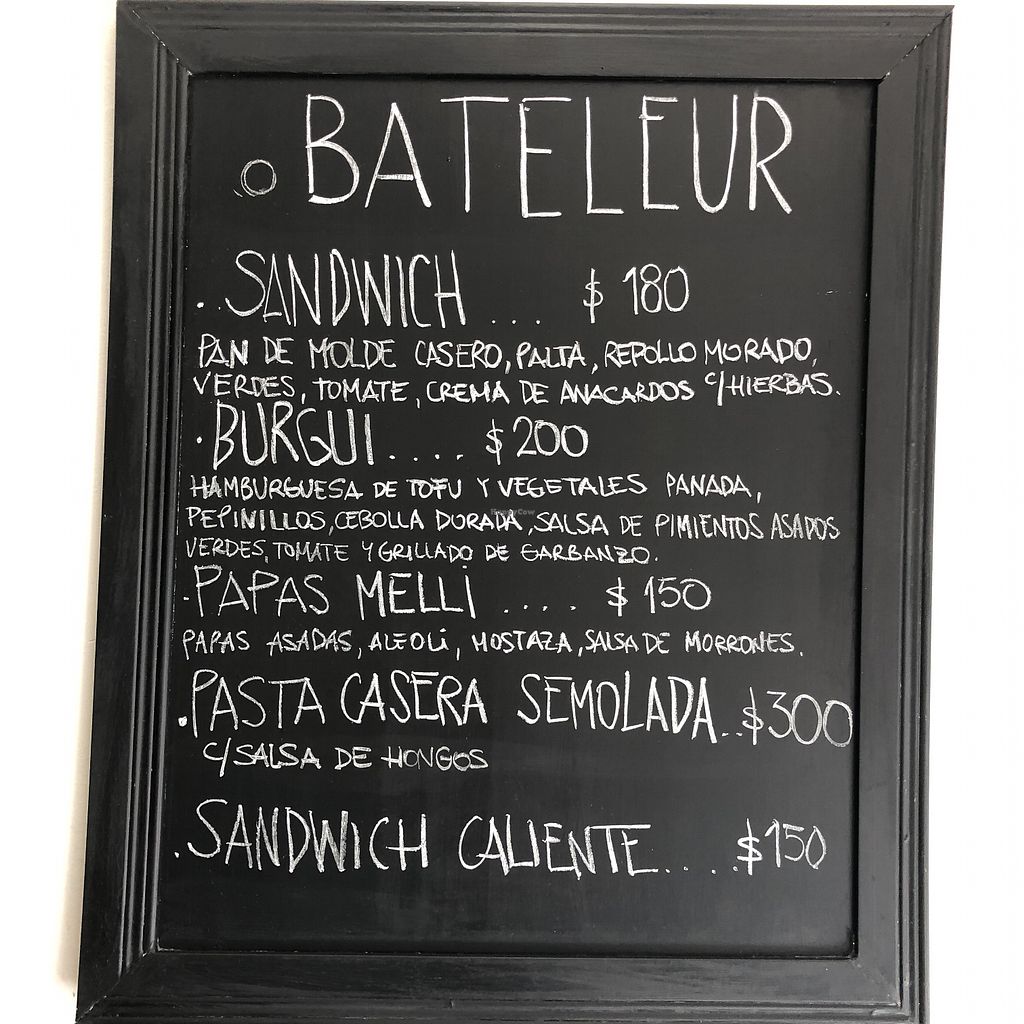 BATELEUR
. SANDWICH ... $ 180
PAN DE MOLDE CASERO, PALTA, REPOLLO MORADO,
VERDES, TOMATE, CREMA DE ANACARDOS C/HIERBAS.
. BURGUI .... $ 200
HAMBURGUESA DE TOFU Y VEGETALES PANADA,
PEPINILLOS, CEBOLLA DORADA, SALSA DE PIMIENTOS ASADOS
VERDES, TOMATE Y GRILLADO DE GARBANZO.
. PAPAS MELLI .... $ 150
PAPAS ASADAS, ALEOLI, MOSTAZA, SALSA DE MORRONES.
. PASTA CASERA SEMOLADA .. $300
C/SALSA DE HONGOS
. SANDWICH CALIENTE .... $150